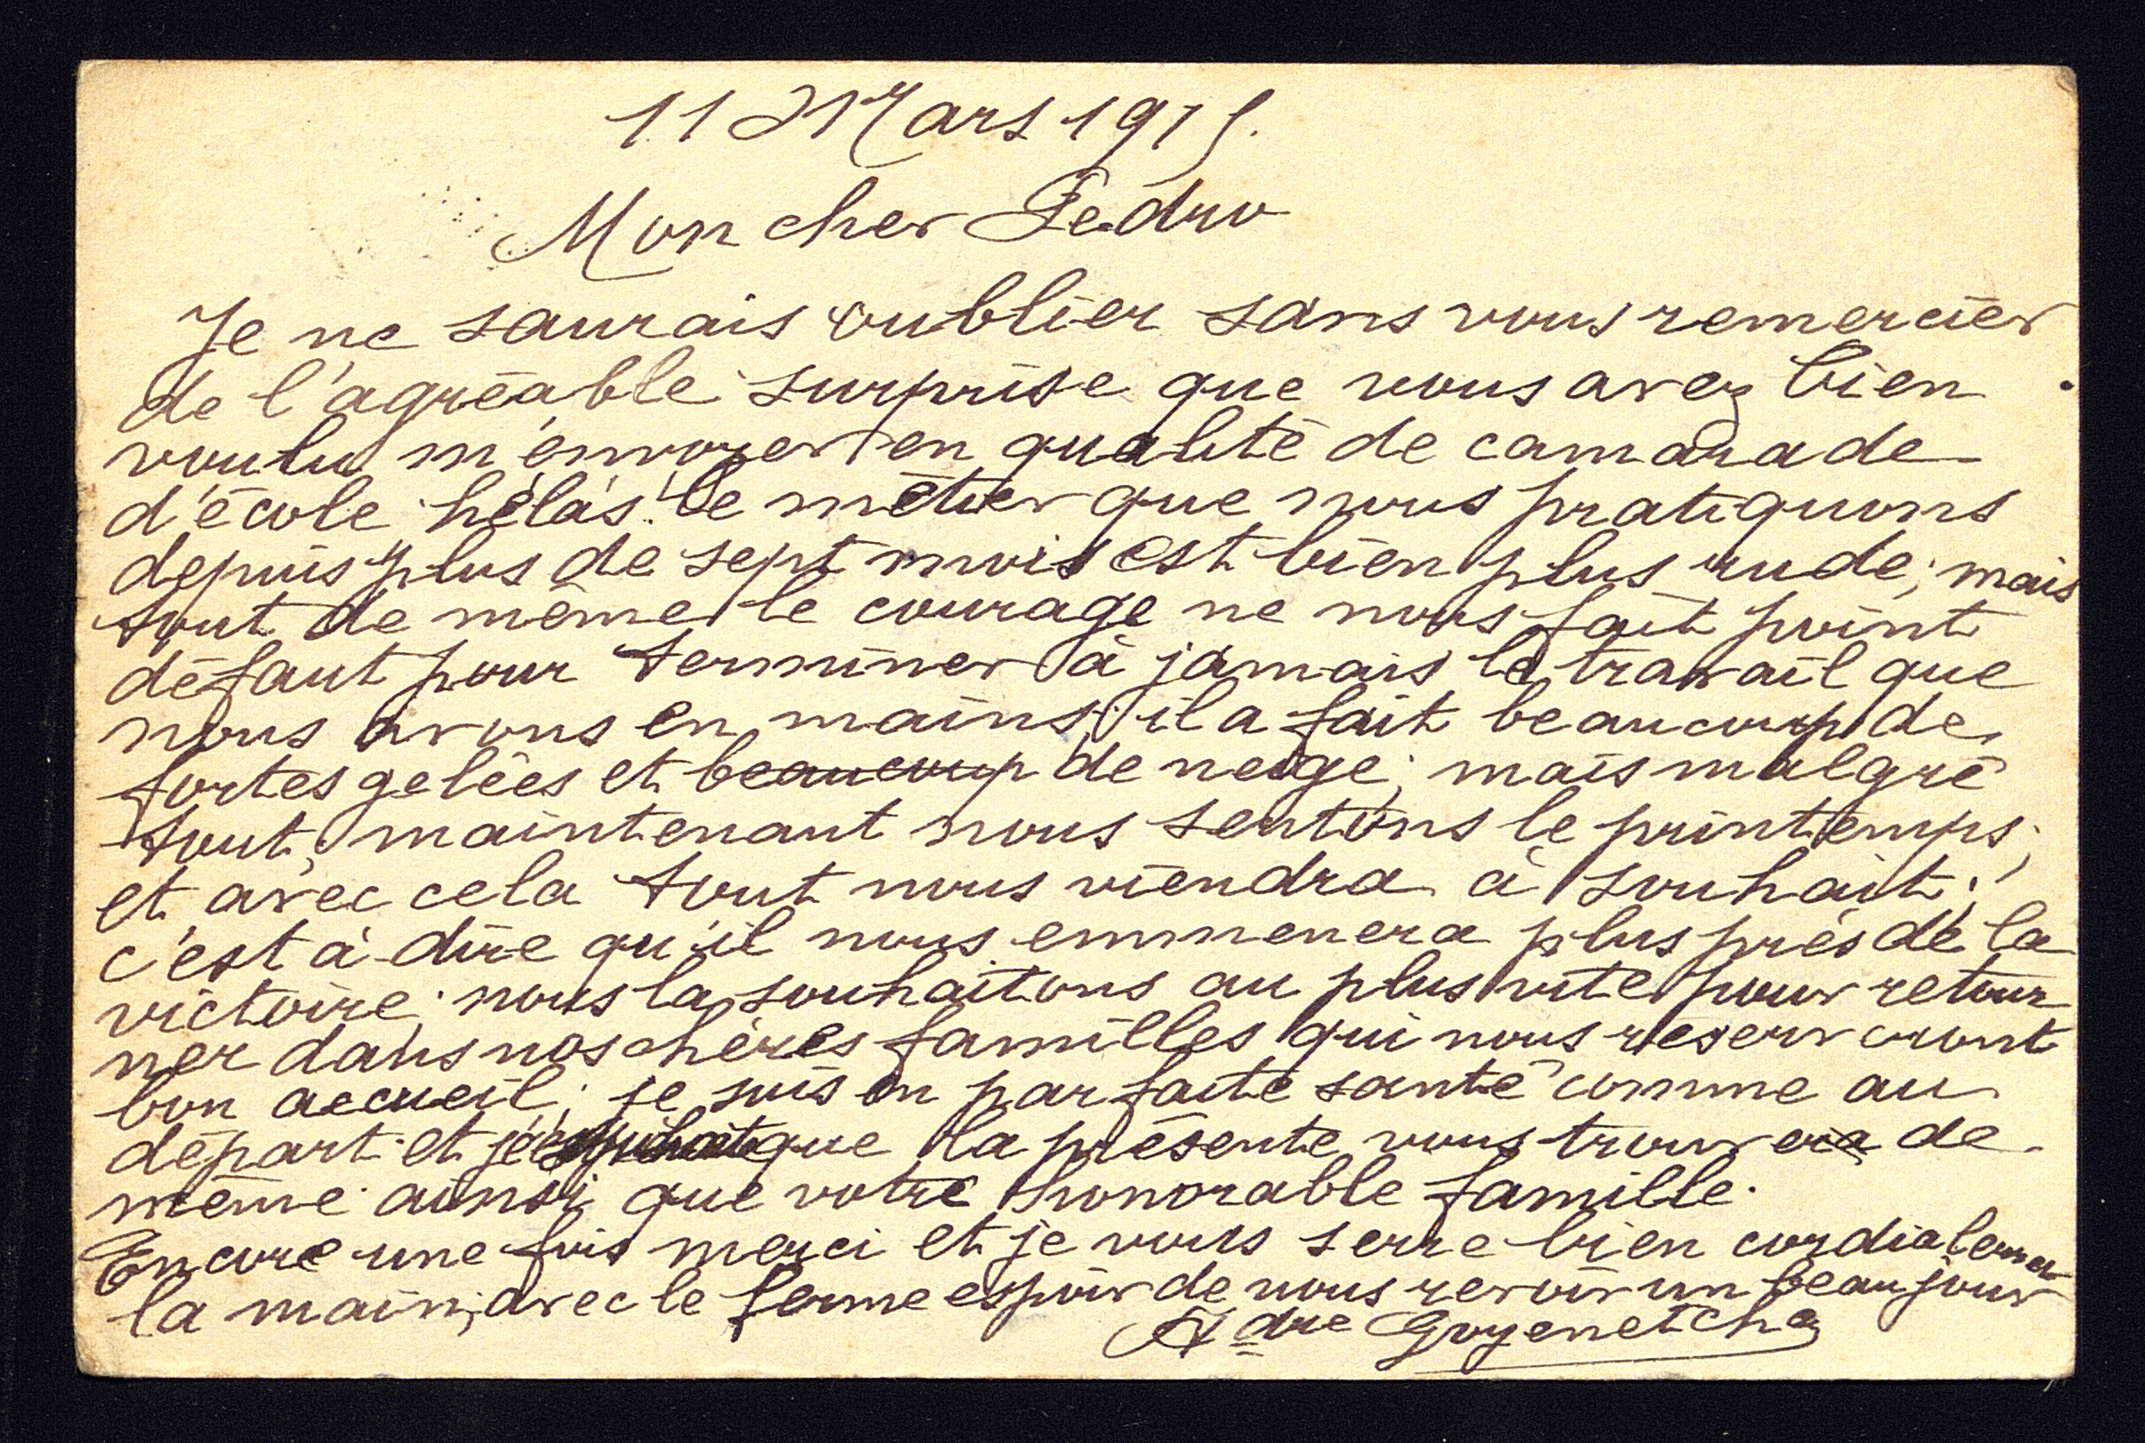 11 Mars 1915.
Mon cher Pedro
Je ne saurais oublier sans vous remercier
de l'agréable surprise que vous avez bien
voulu m'envoyer en qualité de camarade
d'école hélas! le métier que nous pratiquons
depuis plus de sept mois est bien plus rude; mais
tout de même le courage ne nous fait point
défaut pour terminer à jamais le travail que
nous avons en mains; il a fait beaucoup de
fortes gelées et beaucoup de neige; mais malgré
tout; maintenant nous sentons le printemps;
et avec cela tout nous viendra à souhait;
c'est à dire qu'il nous emmenera plus près de la
victoire; nous la souhaitons au plus vite pour retour
ner dans nos chères familles qui nous reserveront
bon accueil; je suis en parfaite santé comme au
départ et que la présente vous trouvera de
même ainsi que votre honorable famille.
Encore une fois merci et je vous serre bien cordialement
la main; avec le ferme espoir de nous revoir un beau jour
Adre Goyenetche